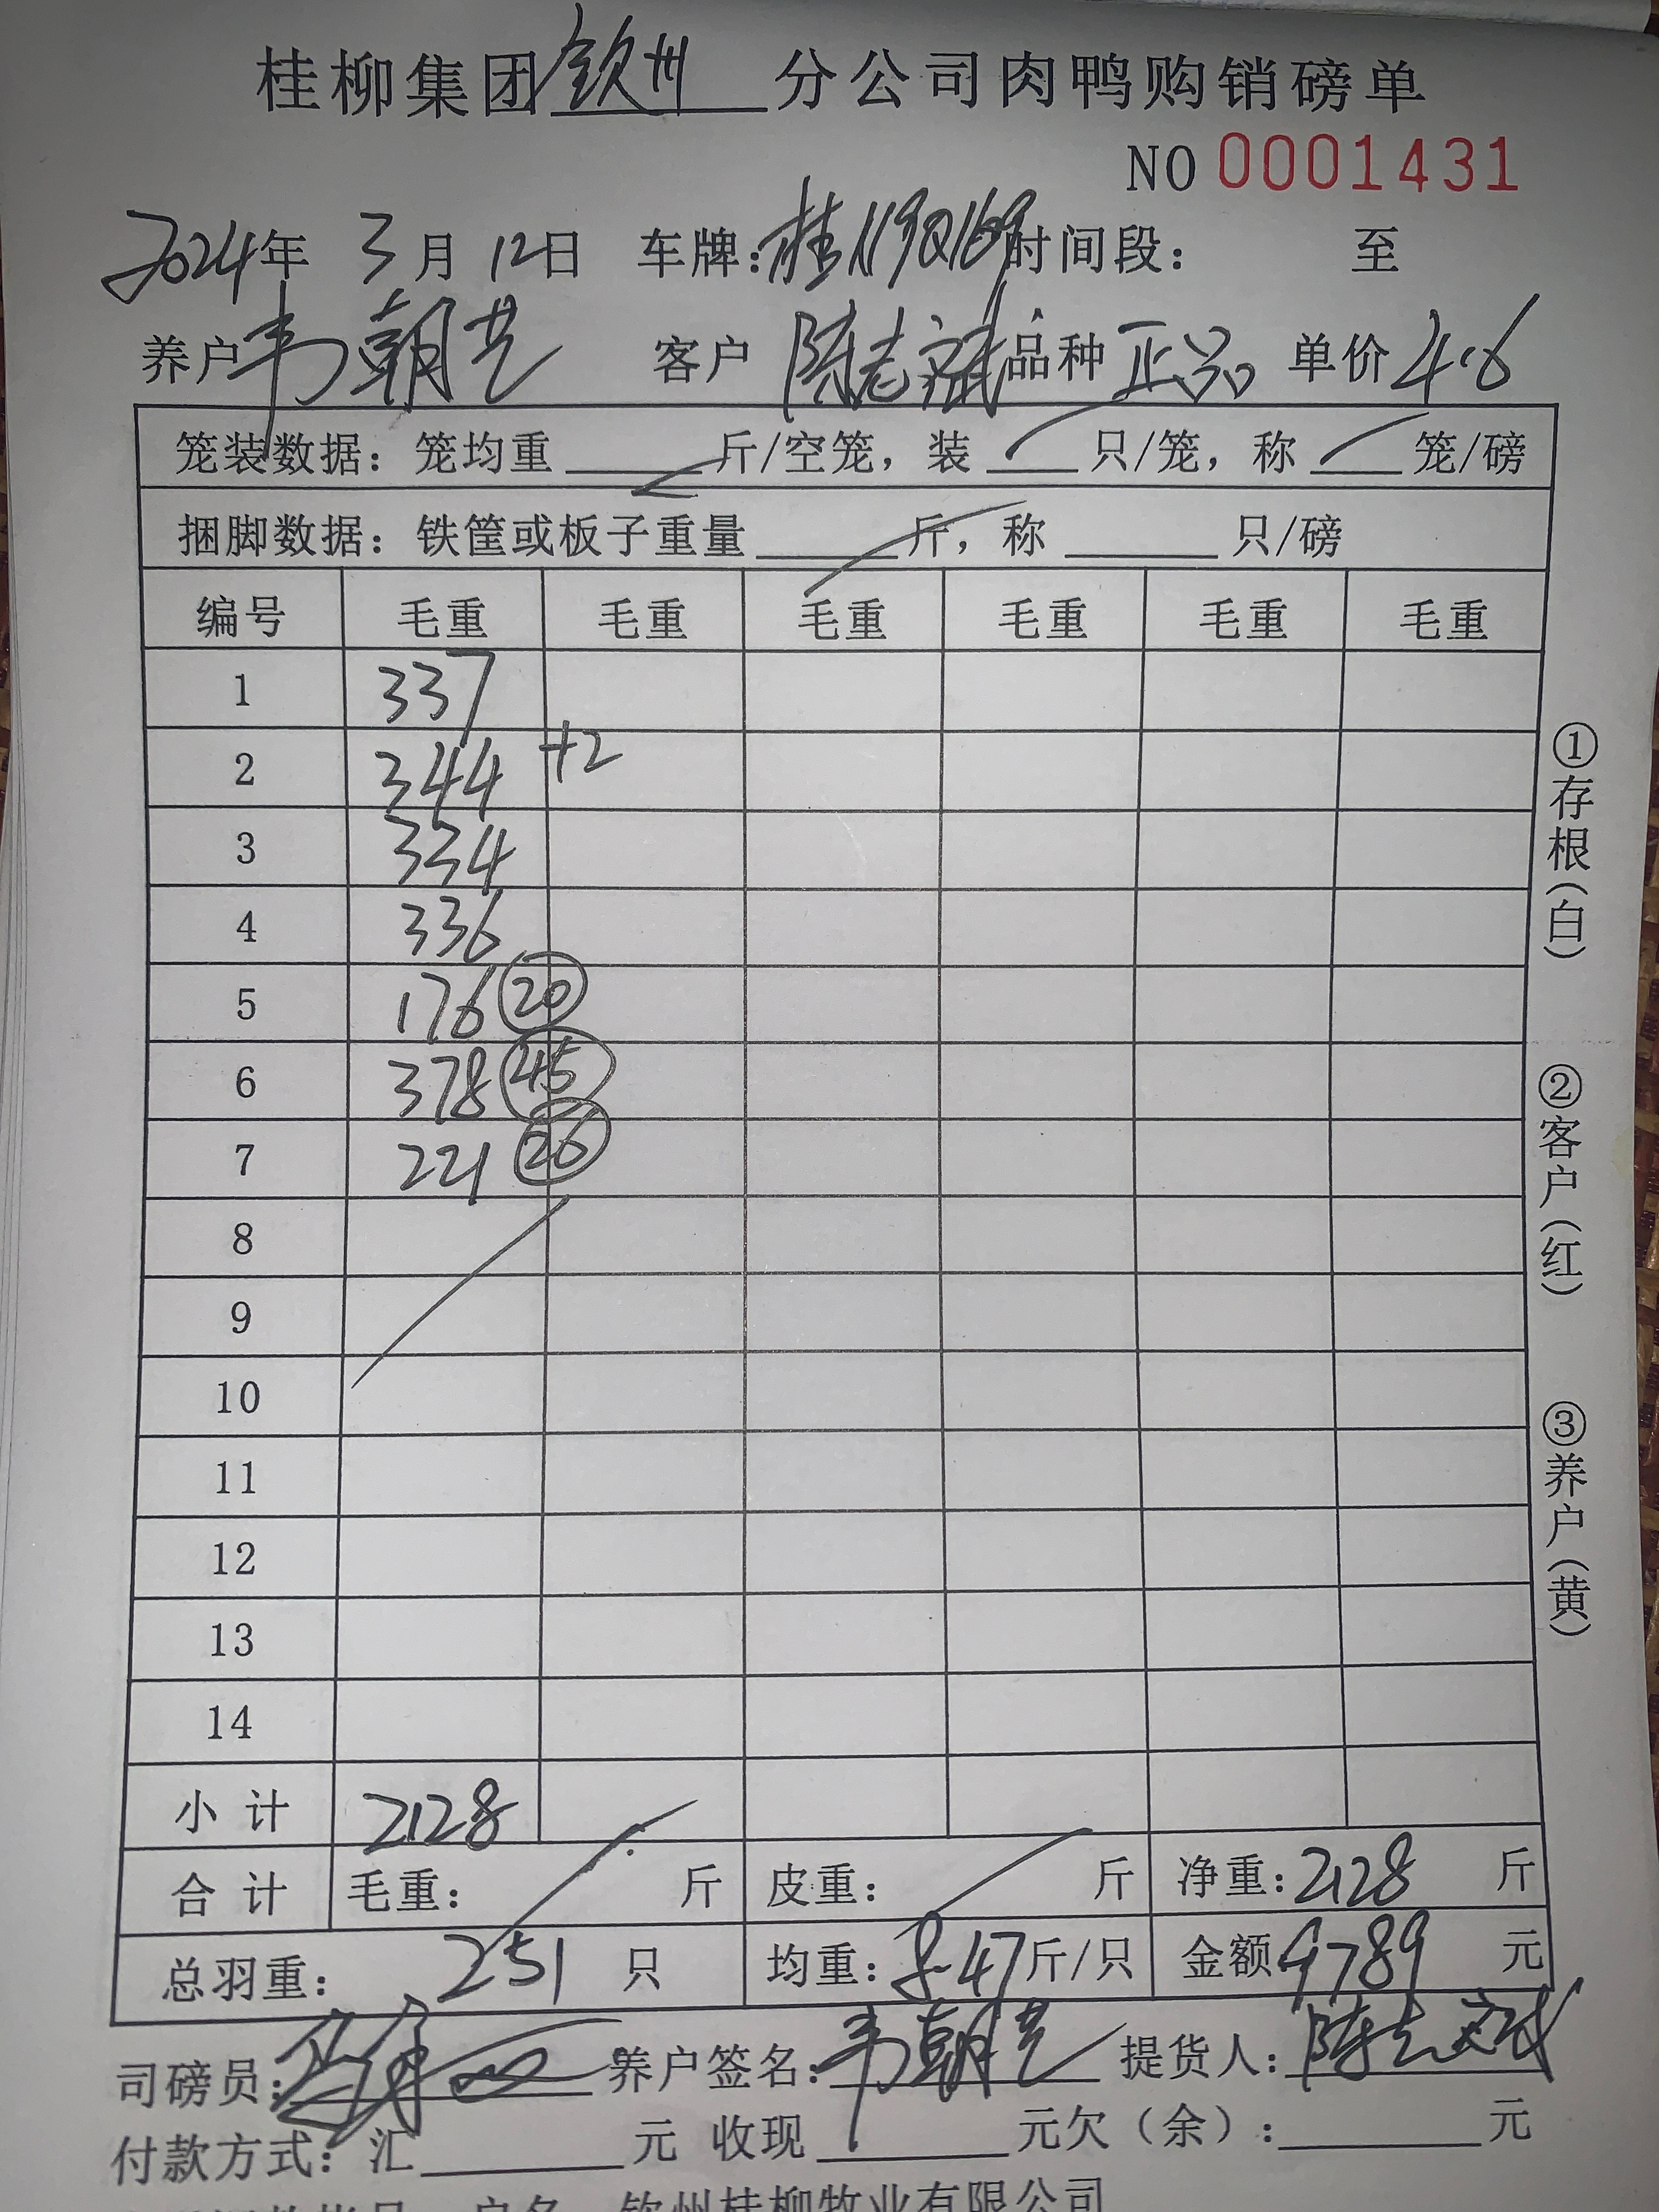 桂柳集团钦州分公司肉鸭购销磅单
NO 0001431
2024年 3月 12日 车牌：桂 时间段： 至
养户韦朝芝 客户 陈志斌 品种 正品 单价 4.6
笼装数据：笼均重 斤/空笼，装 只/笼，称 笼/磅
捆脚数据：铁筐或板子重量 斤，称 只/磅
编号 毛重 毛重 毛重 毛重 毛重 毛重
1 337
2 344 +2
3 334
4 336
5 176 20
6 378 45
7 221 26
8
9
10
11
12
13
14
小计 2128
合计 毛重： 斤 皮重： 斤 净重：2128 斤
总羽重： 251 只 均重：8.47斤/只 金额9789 元
司磅员： 养户签名：韦朝芝 提货人：陈志斌
付款方式：汇 元 收现 元欠（余）： 元
户名 钦州桂柳牧业有限公司
①存根（白）
②客户（红）
③养户（黄）